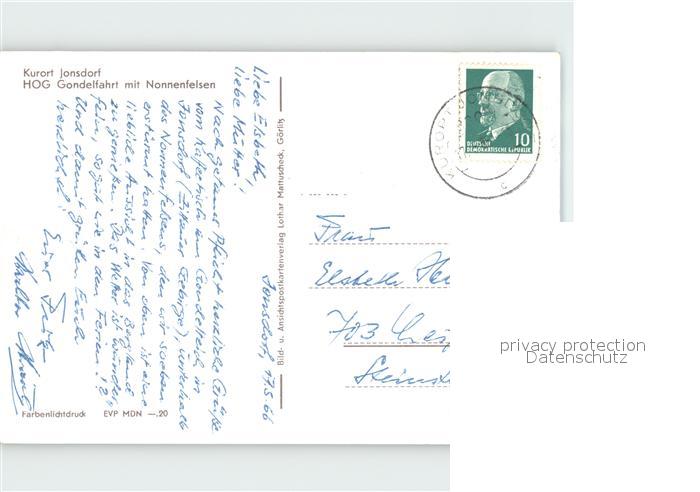 Kurort Jonsdorf
HOG Gondelfahrt mit Nonnenfelsen
Jonsdorf, 17.5.66
Liebe Elsbeth,
liebe Mutter!
Nach getaner Pflicht herzliche Grüße
vom Kaffeetisch am Gondelteich in
Jonsdorf (Zittauer Gebirge), unterhalb
des Nonnenfelsens, den wir soeben
erstürmt hatten. Von oben ist eine
liebliche Aussicht in das Bergland
zu genießen. Das Wetter ist wunder-
fein, so gut wie in den Ferien!?
Und damit grüßen Euch
herzlichst
Eure
Farbenlichtdruck EVP MDN —.20
Bild- u. Ansichtspostkartenverlag Lothar Mattuscheck, Görlitz
KURORT
DEUTSCHE
DEMOKRATISCHE REPUBLIK
10
Frau
Elsbeth
703
privacy protection
Datenschutz